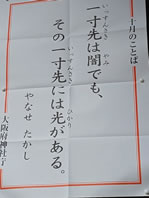 十月のことば
一寸先は闇でも、
いっすんさき
やみ
その一寸先には光がある。
いっすんさき
ひかり
やなせ たかし
大阪府神社庁